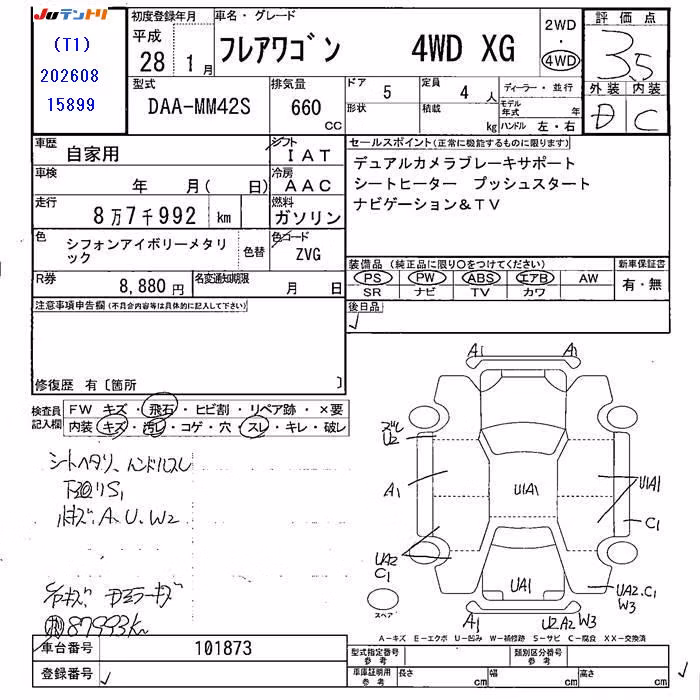 JUテントリ
(T1)
202608
15899
初度登録年月
平成
28 1月
車名・グレード
フレアワゴン 4WD XG
2WD
・
4WD
評価点
3.5
外装 内装
D C
型式
DAA-MM42S
排気量
660 cc
ドア 5
形状
定員 4 人
積載 kg
ディーラー・並行
モデル年式 年
ハンドル 左・右
車歴 自家用
シフト IAT
車検 年 月( 日)
冷房 AAC
走行 8万7千992 km
燃料 ガソリン
色 シフォンアイボリーメタリック
色替
色コード ZVG
R券 8,880円
名変通知期限 月 日
セールスポイント(正常に機能するものに限ります)
デュアルカメラブレーキサポート
シートヒーター プッシュスタート
ナビゲーション&TV
装備品(純正品に限り○をつけてください)
PS PW ABS エアB AW
SR ナビ TV カワ
新車保証書
有・無
後日品
注意事項申告欄(不具合内容等は具体的に記入して下さい)
修復歴 有〔箇所 〕
検査員記入欄
FW キズ・飛石・ヒビ割・リペア跡・×要
内装 キズ・汚レ・コゲ・穴・スレ・キレ・破レ
シートヘタリ、ハンドルスレ
下廻りS1
A、U、W2
キズ
87993km
A1 A1
ズレ
U2
A1
U1A1
U1A1
C1
UA2
C1
UA1
UA2.C1
W3
スペア
A1 U2A2 W3
A-キズ E-エクボ U-凹み W-補修跡 S-サビ C-腐食 XX-交換済
車台番号 101873
登録番号
型式指定番号
参考
類別区分番号
参考
車庫証明用
参考
長さ cm 幅 cm 高さ cm